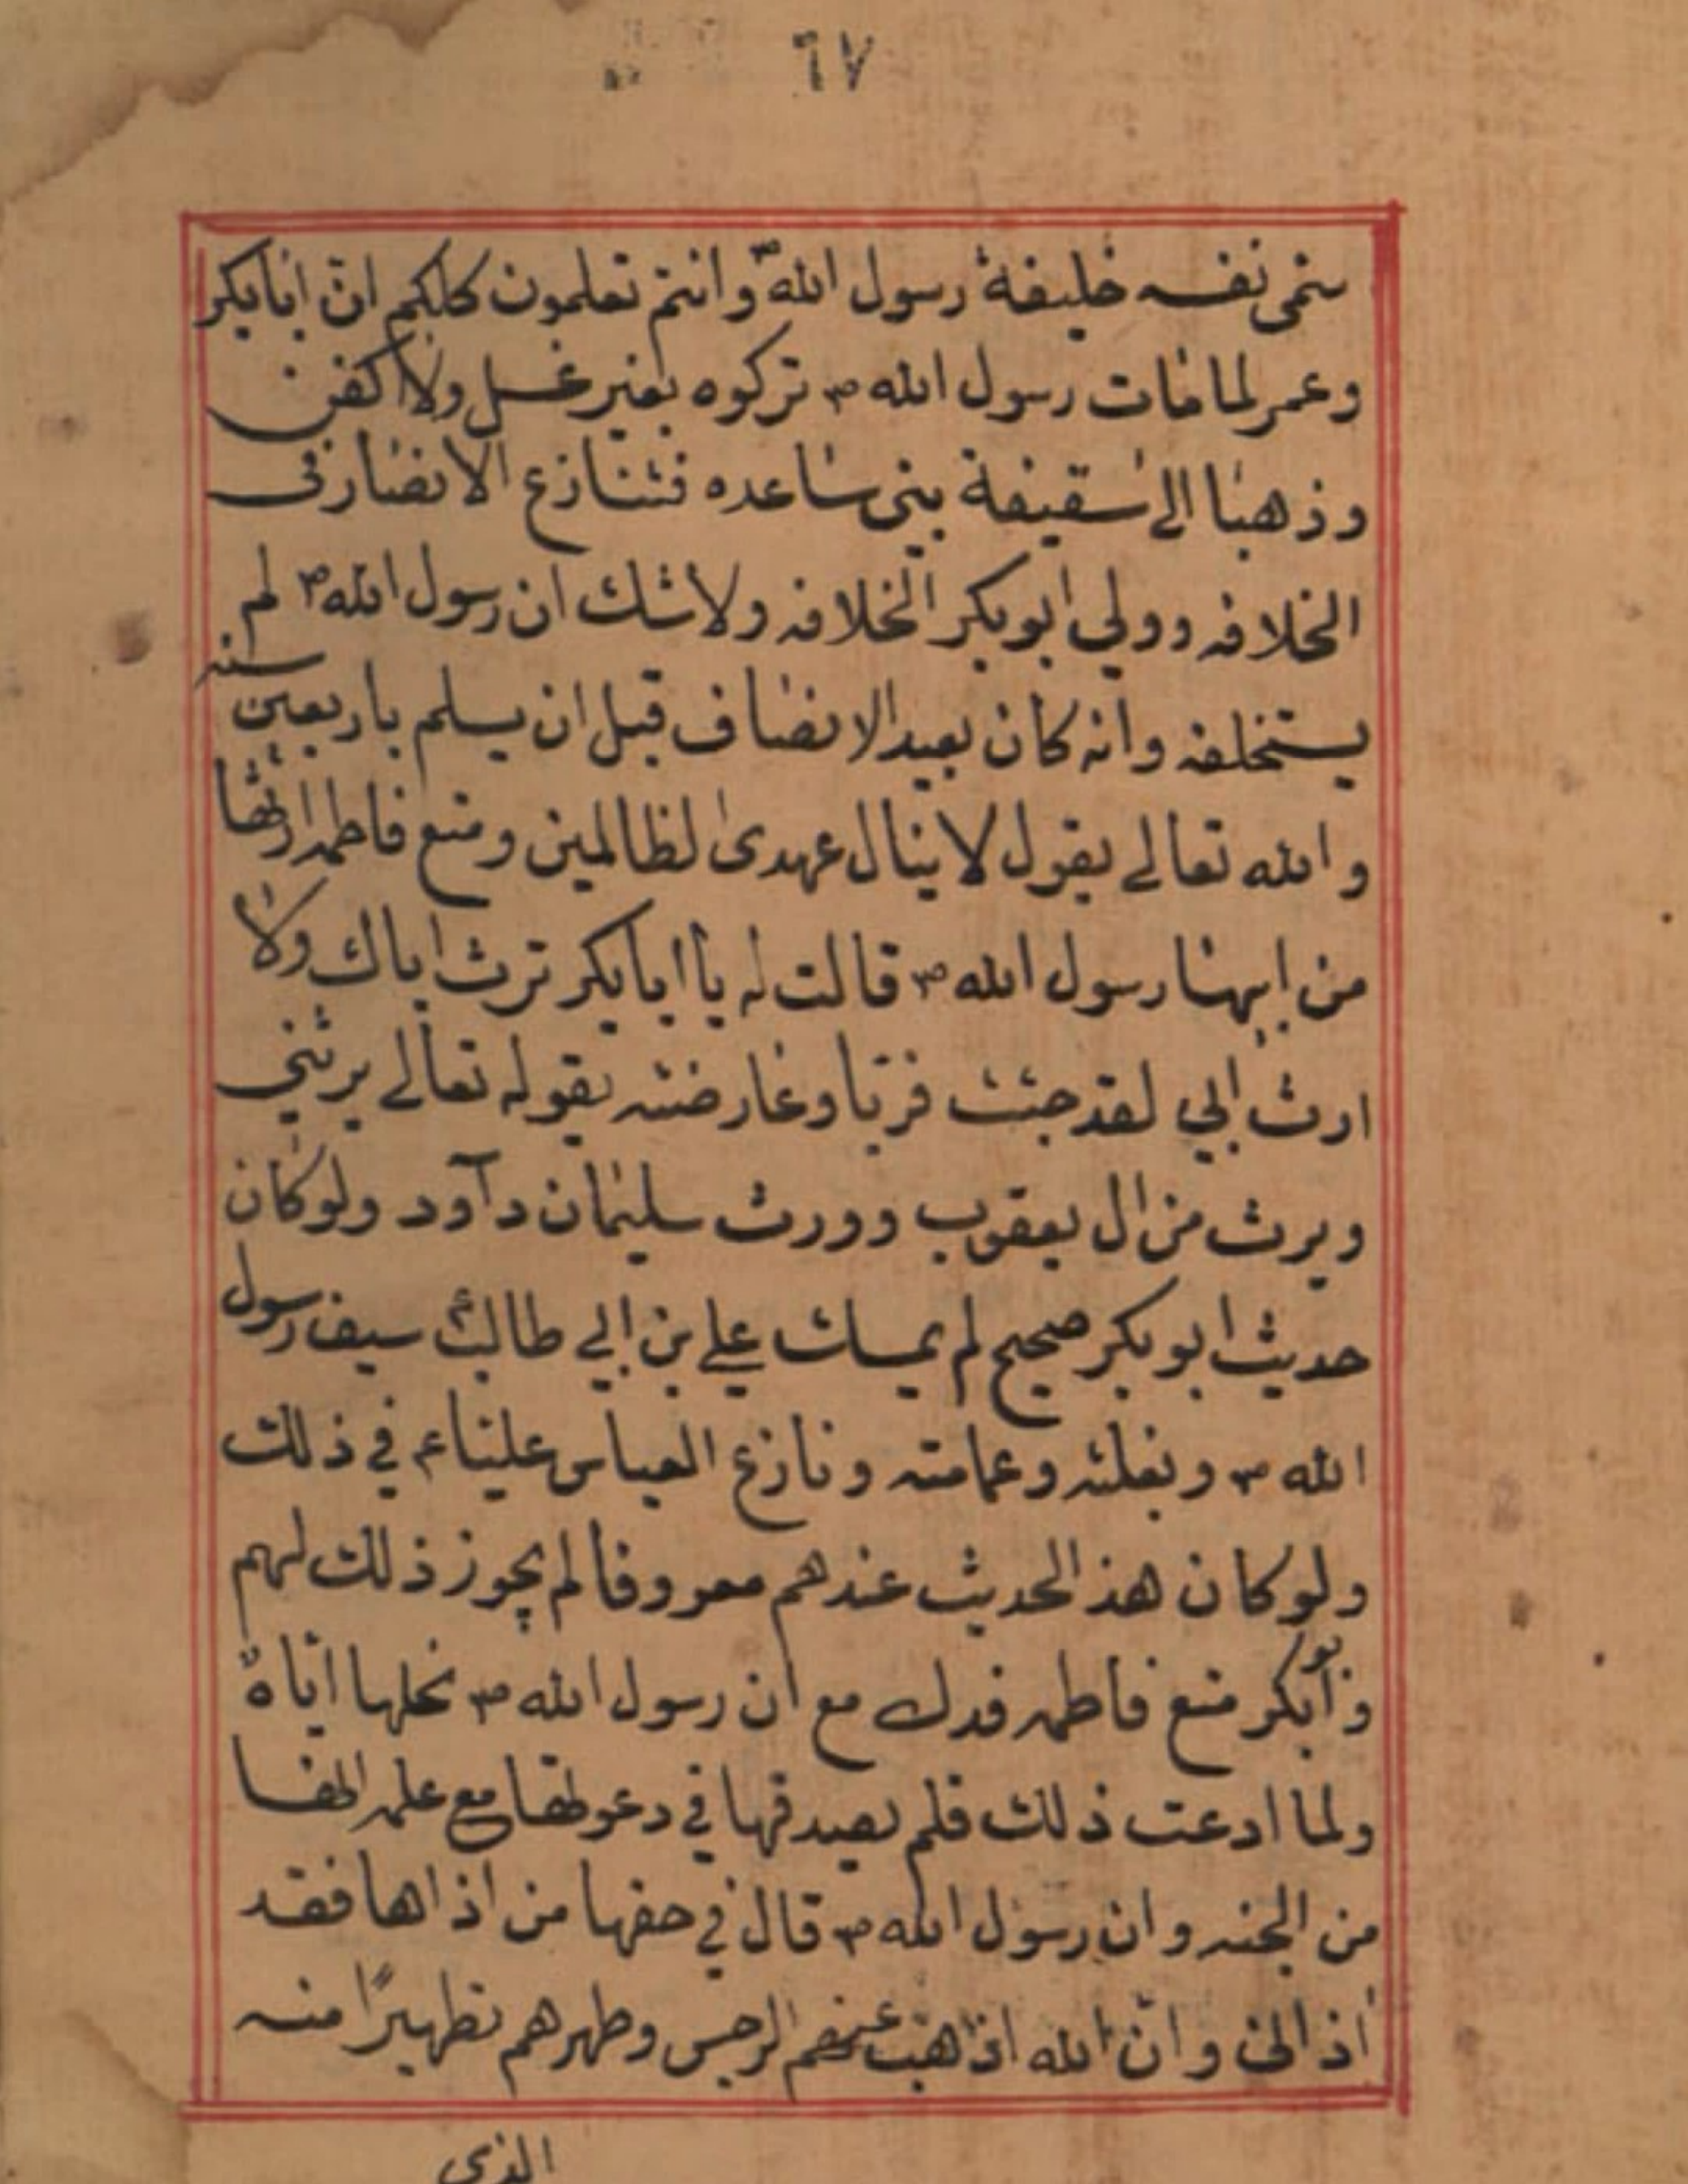 ٦٧
سمى نفسه خليفة رسول الله ص وانتم تعلمون كلكم ان ابابكر
وعمر لما مات رسول الله ص تركوه بغير غسل ولا كفن
وذهبا الى سقيفة بني ساعده فتنازع الانصار في
الخلافه وولي ابو بكر الخلافه ولا شك ان رسول الله ص لم
يستخلفه وانه كان بعيد الانصاف قبل ان يسلم باربعين سنه
والله تعالى يقول لا ينال عهدى لظالمين ومنع فاطمه ارثها
من ابيها رسول الله ص قالت له يا ابابكر ترث اباك ولا
ارث ابي لقد جئت فريا وعارضته بقوله تعالى يرثني
ويرث من ال يعقوب وورث سليمان دآود ولو كان
حديث ابو بكر صحيح لم يمسك علي بن ابي طالب ع سيف رسول
الله ص وبغلته وعمامته ونازع العباس عليا ع في ذلك
ولو كان هذ الحديث عندهم معروفا لم يجوز ذلك لهم
وابو بكر منع فاطمه فدك مع ان رسول الله ص نحلها اياه
ولما ادعت ذلك فلم يصدقها في دعوطها مع علمه انها
من الجنه وان رسول الله ص قال في حقها من اذاها فقد
اذاني وان الله اذاهب عنهم الرجس وطهرهم تطهيرًا منه
الذي